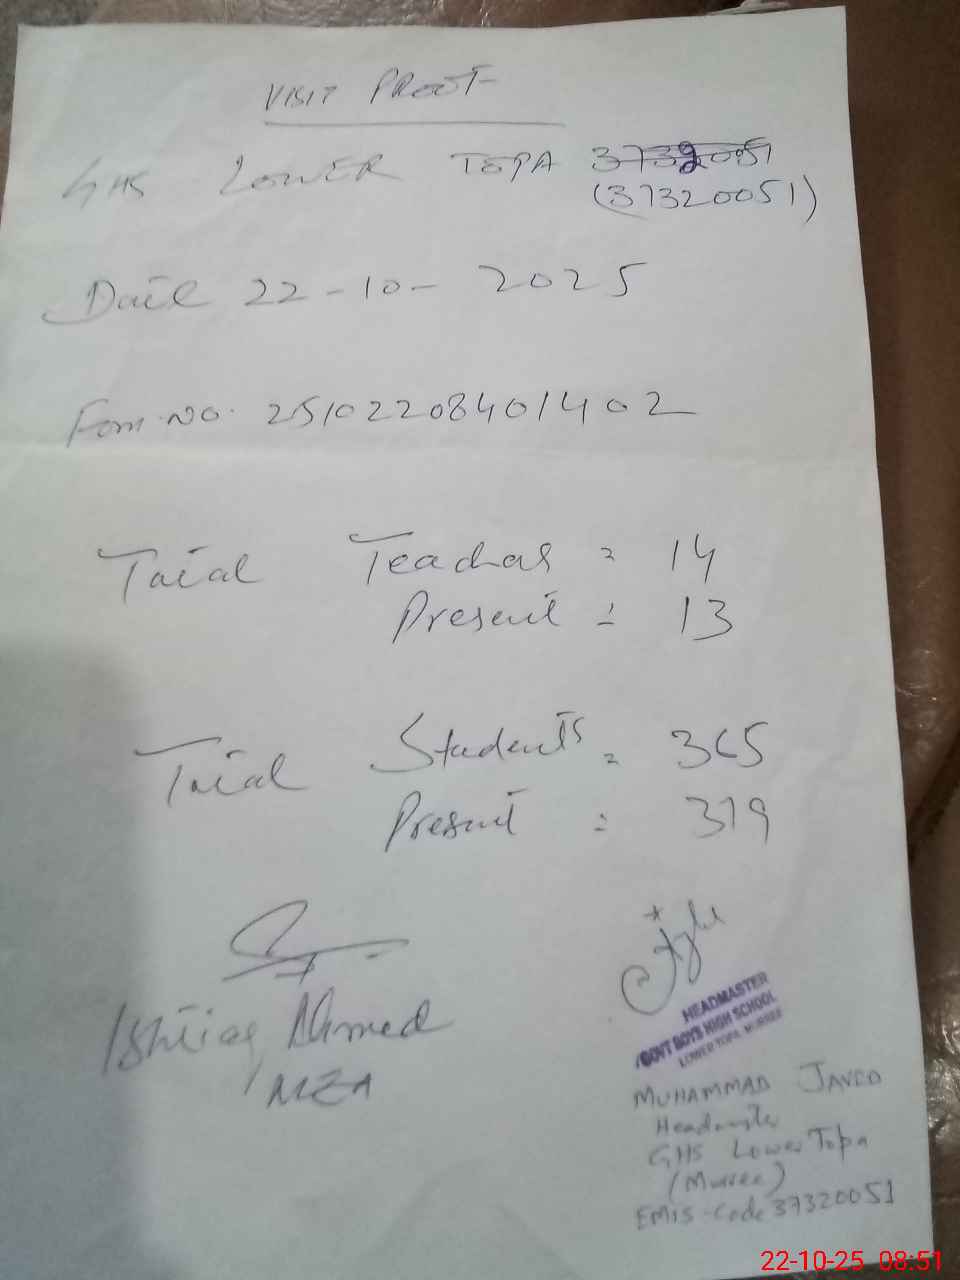 VISIT PROOF
GHS LOWER TOPA 37320051
(37320051)
Date 22-10-2025
Form No. 25102208401402
Total Teachers = 14
Present = 13
Total Students = 365
Present = 319
Ishtiaq Ahmed
MEA
HEADMASTER
GOVT BOYS HIGH SCHOOL
LOWER TOPA MURREE
MUHAMMAD JAVED
Headmaster
GHS Lower Topa
(Murree)
EMIS-Code 37320051
22-10-25 08:51